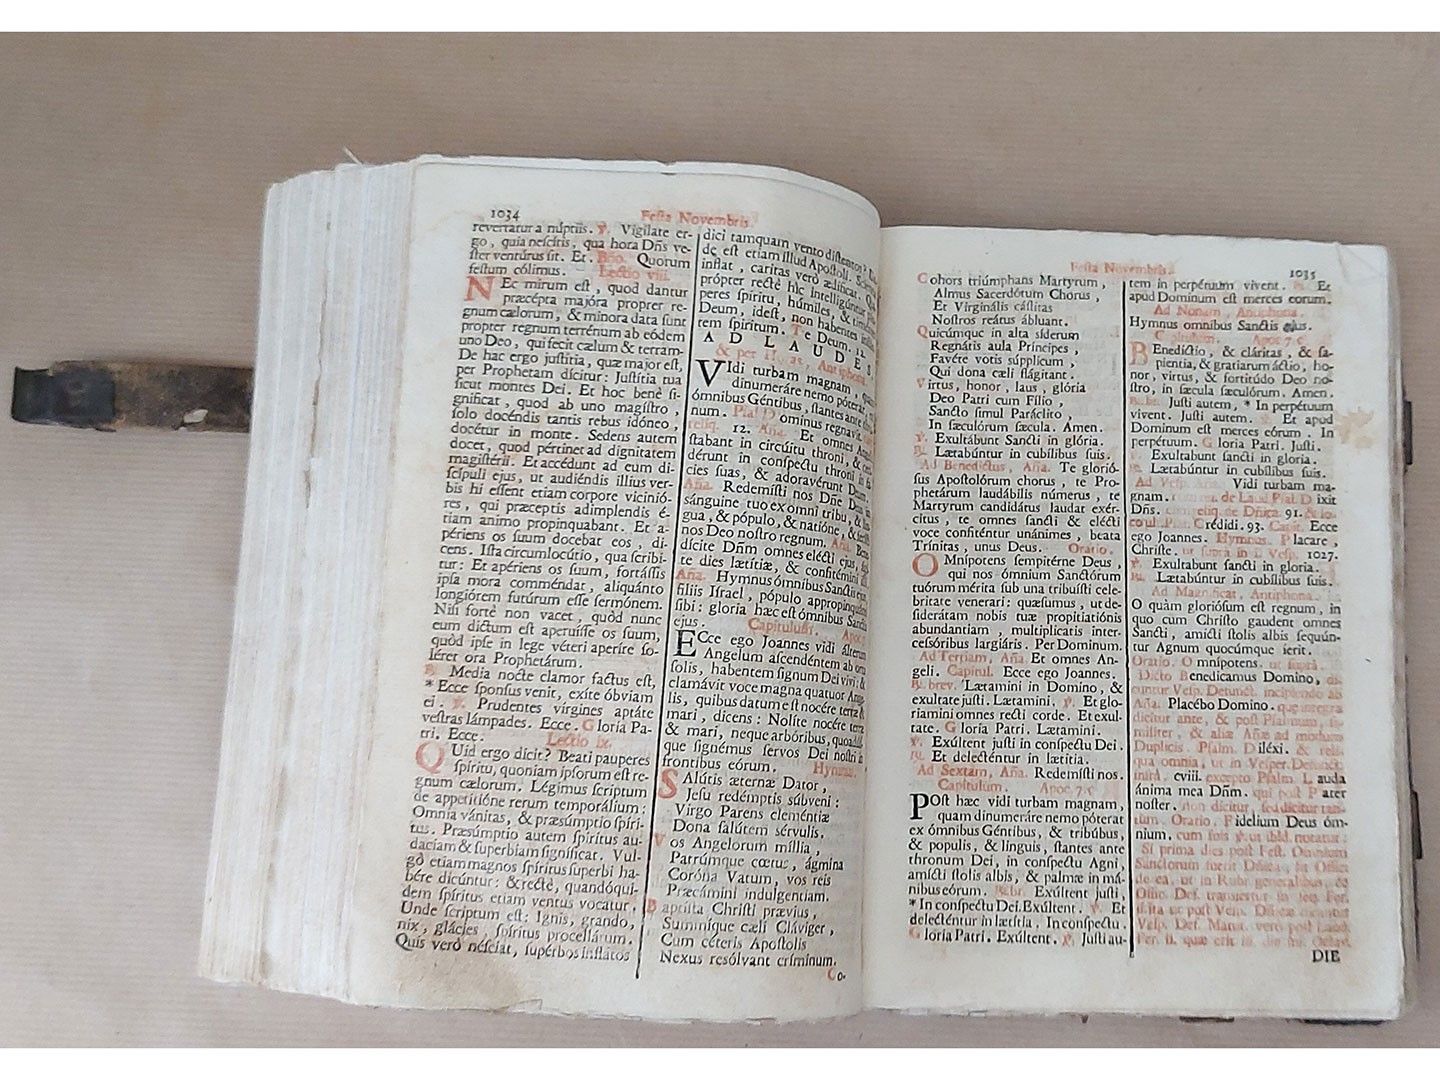 1034
Festa Novembris.
revertatur a núptiis. ℣. Vigilate er-
go, quia nescítis, qua hora Dñs ve-
ster ventúrus sit. Et. Bño. Quorum
festum cólimus. Lectio viii.
NEc mirum est, quod dantur
præcépta majóra propter re-
gnum cælorum, & minora data sunt
propter regnum terrénum ab eódem
uno Deo, qui fecit cælum & terram.
De hac ergo justítia, quæ major est,
per Prophetam dícitur: Justítia tua
sicut montes Dei. Et hoc benè si-
gníficat, quod ab uno magístro,
solo docéndis tantis rebus idóneo,
docétur in monte. Sedens autem
docet, quod pértinet ad dignitatem
magistérii. Et accédunt ad eum di-
scípuli ejus, ut audiéndis illius ver-
bis hi essent etiam corpore vicinió-
res, qui præceptis adimplendis é-
tiam animo propinquabant. Et a-
périens os suum docebat eos, di-
cens. Ista circumlocútio, qua scríbi-
tur: Et apériens os suum, fortássis
ipsa mora comméndat, aliquánto
longiórem futúrum esse sermónem.
Nisi fortè non vacet, quòd nunc
eum dictum est aperuísse os suum,
quòd ipse in lege véteri aperíre so-
léret ora Prophetárum.
℟. Media nocte clamor factus est,
* Ecce sponsus venit, exíte óbviam
ei. ℣. Prudentes virgines aptáte
vestras lámpades. Ecce. Gloria Pa-
tri. Ecce. Lectio ix.
QUid ergo dicit? Beati pauperes
spíritu, quoniam ipsorum est re-
gnum cælorum. Légimus scriptum
de appetitióne rerum temporálium:
Omnia vánitas, & præsúmptio spíri-
tus. Præsúmptio autem spíritus au-
dáciam & superbiam significat. Vul-
gò etiam magnos spíritus supérbi ha-
bére dicúntur: & rectè, quandóqui-
dem spíritus etiam ventus vocatur,
Unde scriptum est: Ignis, grando,
nix, glácies, spíritus procellárum.
Quis verò nésciat, superbos inflátos
dici tamquam vento disténtos?
de est etiam illud Apostoli.
inflat, caritas verò ædíficat.
própter rectè hîc intelligúntur
peres spíritu, húmiles, & timéntes
Deum, idest, non habentes
tem spíritum. Te Deum. 12.
AD LAUDES,
& per Horas, Antiphona.
VIdi turbam magnam, quam
dinumeráre nemo póterat,
ómnibus Géntibus, stantes ante
num. Psal. Dominus regnavit,
reliq. 12. Aña. Et omnes Angeli
stabant in circúitu throni, &
dérunt in conspectu throni in fa-
cies suas, & adoravérunt Deum.
Aña. Redemísti nos Dñe Deus in
sánguine tuo ex omni tribu, & lin-
gua, & pópulo, & natióne, & fecísti
nos Deo nostro regnum. Aña. Bene-
dícite Dñm omnes elécti ejus,
te dies lætítiæ, & confitémini illi.
Aña. Hymnus ómnibus Sanctis ejus,
fíliis Israel, pópulo appropinquánti
sibi: gloria hæc est ómnibus Sanctis
ejus. Capitulum. Apoc. 7.
ECce ego Joannes vidi álterum
Angelum ascendéntem ab ortu
solis, habentem signum Dei vivi: &
clamávit voce magna quatuor Ange-
lis, quibus datum est nocére terræ &
mari, dicens: Nolíte nocére terræ
& mari, neque arbóribus, quoadús-
que signémus servos Dei nostri in
frontibus eórum. Hymnus.
SAlútis æternæ Dator,
Jesu redémptis súbveni:
Virgo Parens cleméntiæ
Dona salútem sérvulis.
Vos Angelorum míllia,
Patrúmque cœtus, ágmina
Coróna Vatum, vos reis
Præcámini indulgentiam.
Baptista Christi prævius,
Summíque cæli Cláviger,
Cum céteris Apostolis
Nexus resólvant críminum.
Co-
Festa Novembris.
1035
Cohors triúmphans Martyrum,
Almus Sacerdótum Chorus,
Et Virginális cástitas
Nostros reátus ábluant.
Quicúmque in alta síderum
Regnátis aula Príncipes,
Favére votis súpplicum,
Qui dona cæli flágitant.
Virtus, honor, laus, glória
Deo Patri cum Fílio,
Sancto simul Paráclito,
In sæculórum sæcula. Amen.
℣. Exultábunt Sancti in glória.
℟. Lætabúntur in cubílibus suis.
Ad Benedictus, Aña. Te glorió-
sus Apostolórum chorus, te Pro-
phetárum laudábilis númerus, te
Martyrum candidátus laudat exér-
citus, te omnes sancti & elécti
voce confiténtur unánimes, beata
Trínitas, unus Deus. Oratio.
OMnípotens sempitérne Deus,
qui nos ómnium Sanctórum
tuórum mérita sub una tribuísti cele-
britate venerari: quæsumus, ut de-
siderátam nobis tuæ propitiatiónis
abundantiam, multiplicatis inter-
cessóribus largiáris. Per Dominum.
Ad Tertiam, Aña. Et omnes An-
geli. Capitul. Ecce ego Joannes.
℟. brev. Lætamini in Domino, &
exultate justi. Lætamini. ℣. Et glo-
riamini omnes recti corde. Et exul-
tate. Gloria Patri. Lætamini.
℣. Exúltent justi in conspectu Dei.
℟. Et delecténtur in lætitia.
Ad Sextam, Aña. Redemísti nos.
Capitulum. Apoc. 7. c
POst hæc vidi turbam magnam,
quam dinumeráre nemo póterat
ex ómnibus Géntibus, & tribúbus,
& populis, & linguis, stantes ante
thronum Dei, in conspectu Agni,
amícti stolis albis, & palmæ in má-
nibus eórum. ℟. br. Exúltent justi,
* In conspectu Dei. Exultent. ℣. Et
delecténtur in lætítia, In conspectu.
Gloria Patri. Exúltent. ℣. Justi au-
tem in perpétuum vivent. ℟. Et
apud Dominum est merces eorum.
Ad Nonam, Antiphona.
Hymnus omnibus Sanctis ejus.
Capitulum. Apoc. 7. c.
BEnedíctio, & cláritas, & sa-
pientia, & gratiarum áctio, ho-
nor, virtus, & fortitúdo Deo no-
stro, in sæcula sæculórum. Amen.
℟. br. Justi autem, * In perpétuum
vivent. Justi autem. ℣. Et apud
Dominum est merces eórum. In
perpétuum. Gloria Patri. Justi.
℣. Exultabunt sancti in gloria.
℟. Lætabúntur in cubílibus suis.
Ad Vesp. Aña. Vidi turbam ma-
gnam. cum rel. de Laud. Psal. Dixit
Dñs. cum reliq. de Dñica. 91. & lo-
co ult. Psal. Crédidi. 93. Capit. Ecce
ego Joannes. Hymnus. Placare,
Christe. ut suprà in I. Vesp. 1027.
℣. Exultabunt sancti in gloria.
℟. Lætabúntur in cubílibus suis.
Ad Magnificat, Antiphona.
O quàm gloriósum est regnum, in
quo cum Christo gaudent omnes
Sancti, amicti stolis albis sequún-
tur Agnum quocúmque ierit.
Oratio. Omnipotens. ut suprà.
Dicto Benedicamus Domino, di-
cuntur Vesp. Defunct. incipiendo ab
Aña. Placébo Domino. quæ integra
dicitur ante, & post Psalmum, si-
militer, & aliæ Añæ ad modum
Duplicis. Psalm. Diléxi. & reli-
qua omnia, ut in Vesper. Defunct.
infrà. cviii. excepto Psalm. Lauda
ánima mea Dñm. qui post Pater
noster. non dicitur, sed dicitur tan-
tùm. Oratio. Fidelium Deus óm-
nium. cum suis ℣. ut ibid. notatur:
Si prima dies post Fest. Omnium
Sanctorum fuerit Dñica, fit Offic.
de ea, ut in Rubr. generalibus, &
Offic. Def. transfertur in
ita ut post Vesp. Dñicæ dicantur
Vesp. Def. Matut. verò post Laud.
Fer. ii. quæ erit iii. die
DIE